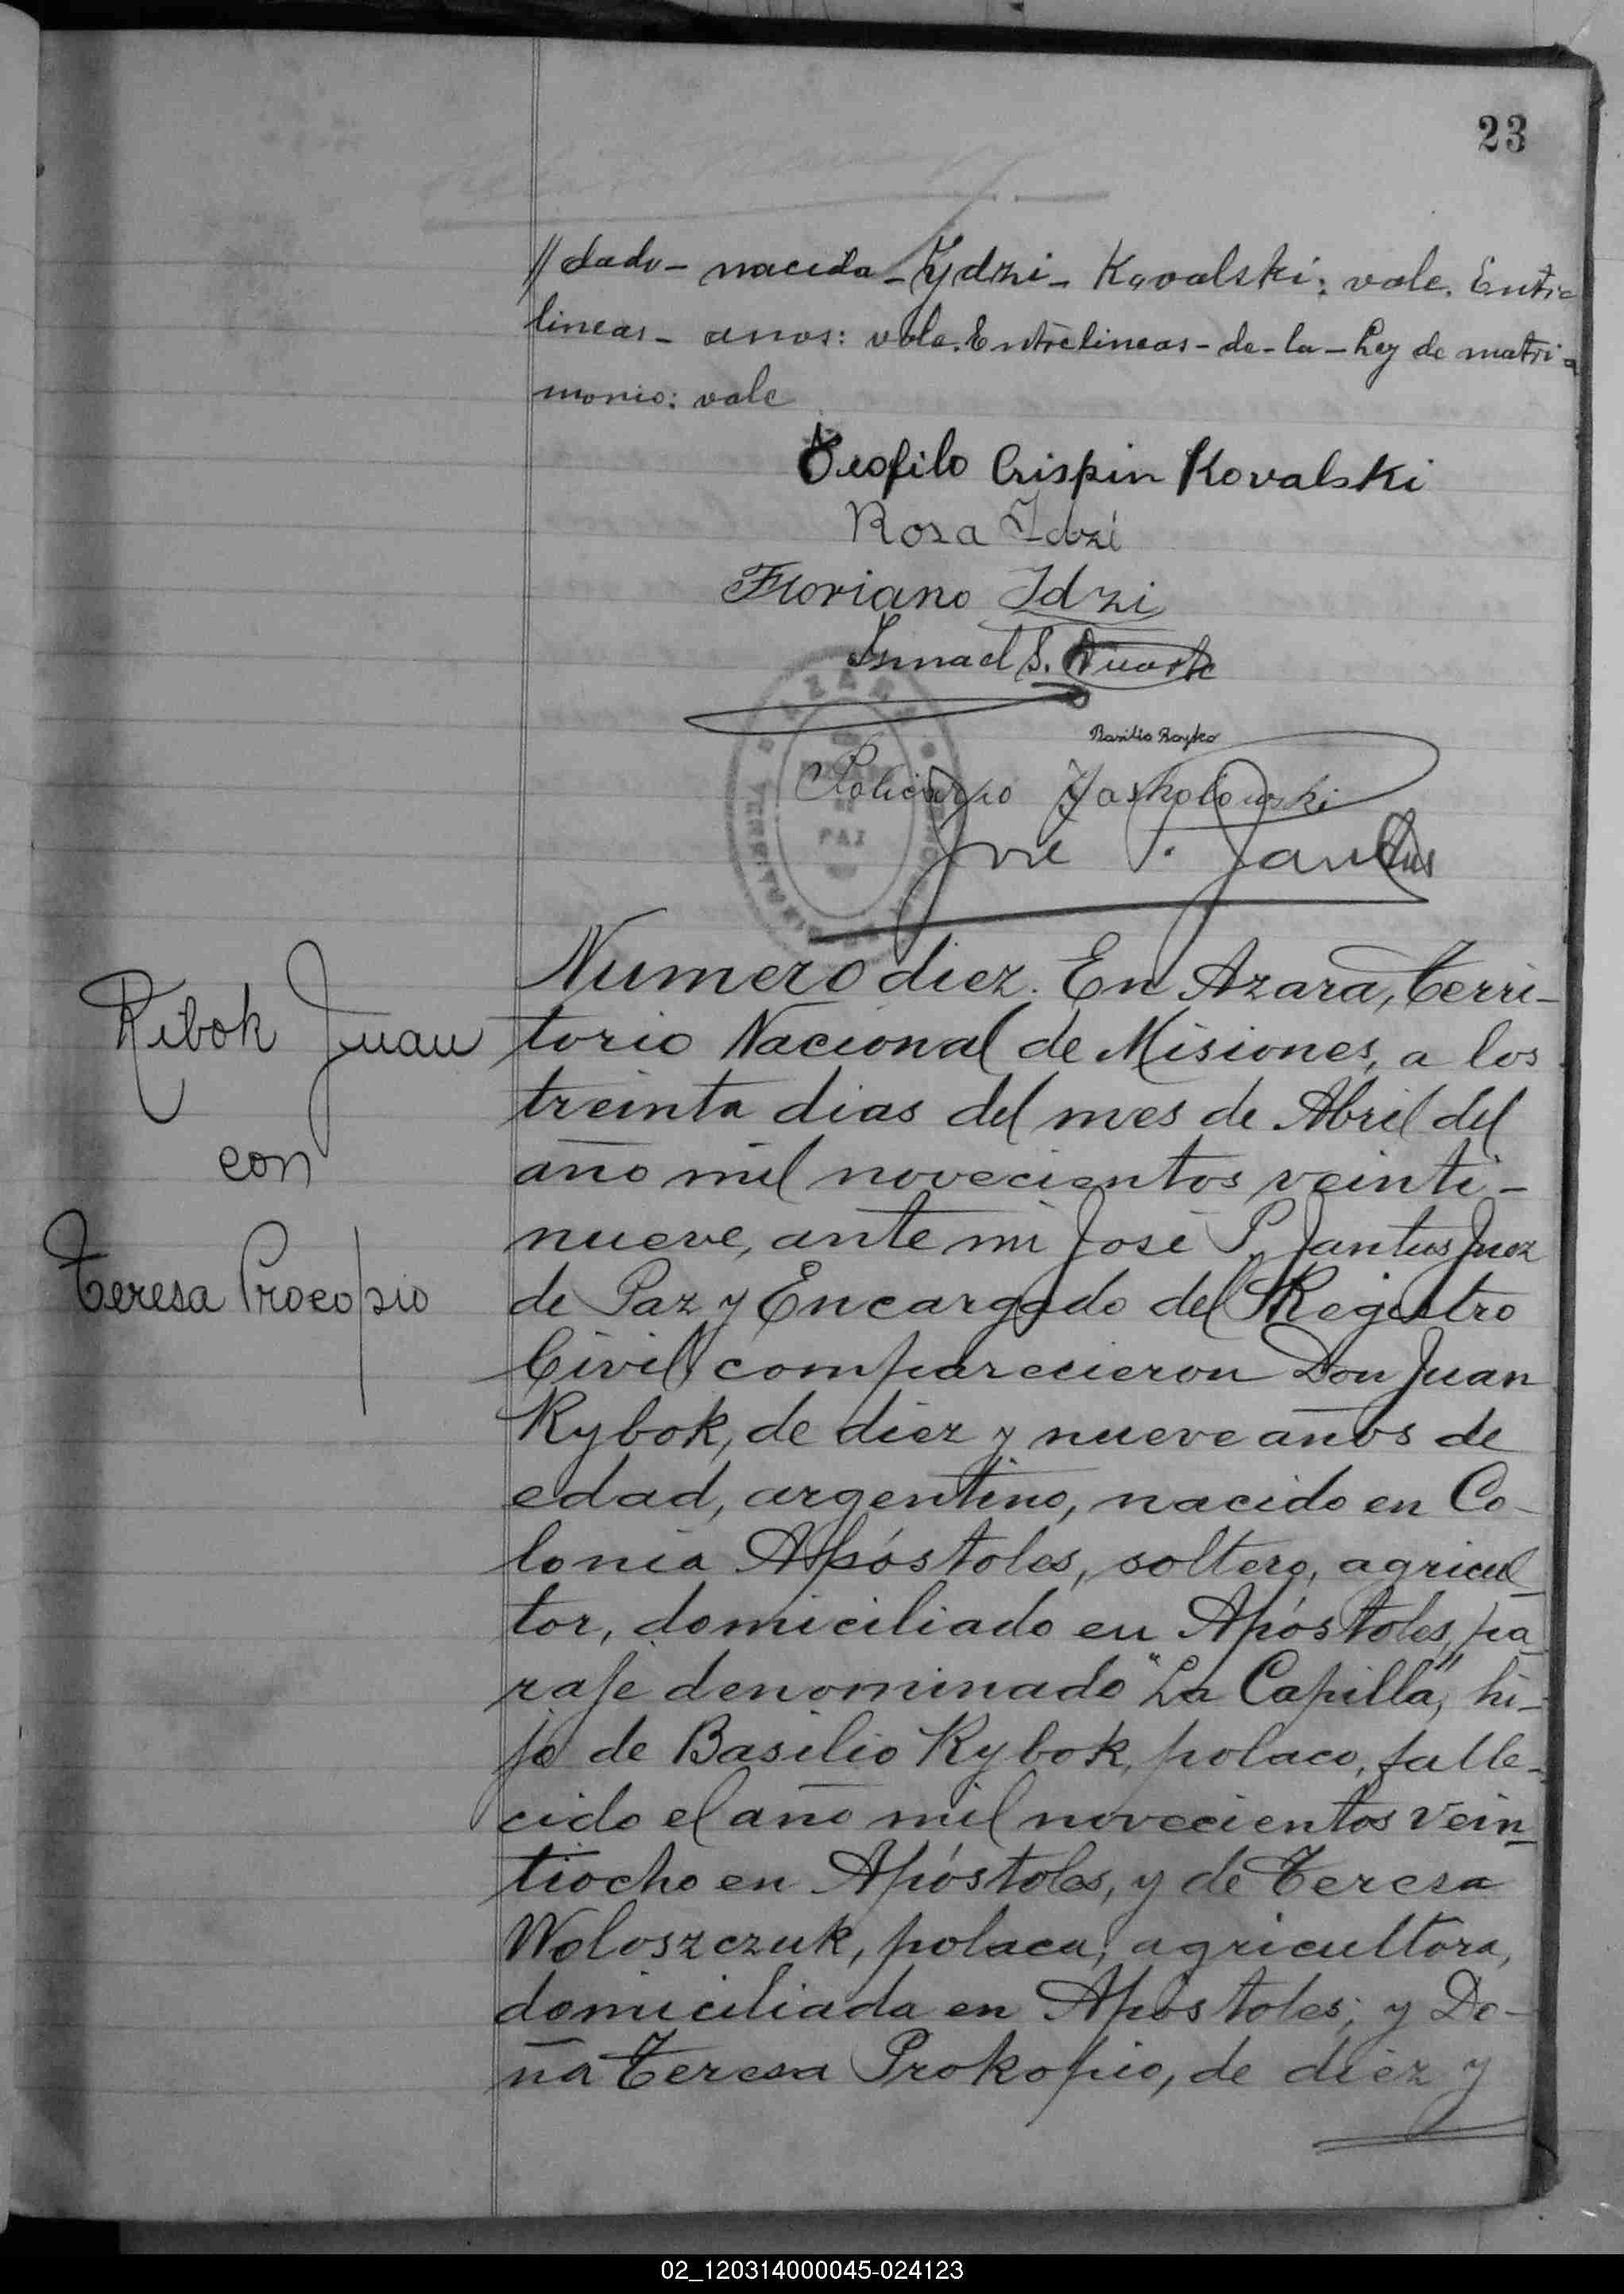 23
//dado- nacida- Ydzi- Kovalski: vale. Entre
lineas- anos: vale. Entrelineas- de- la- Ley de matri-
monio: vale
Teofilo Crispin Kovalski
Rosa Idzi
Floriano Idzi
Ismael S. Duarte
Basilio Boyko
Policarpo Yaskolowski
PAZ
José P. Jantus
Ribok Juan
con
Teresa Procopio
Numero diez. En Azara, Terri-
torio Nacional de Misiones, a los
treinta dias del mes de Abril del
año mil novecientos veinti-
nueve, ante mi José P. Jantus Juez
de Paz y Encargado del Registro
Civil, comparecieron Don Juan
Rybok, de diez y nueve años de
edad, argentino, nacido en Co-
lonia Apóstoles, soltero, agricul-
tor, domiciliado en Apóstoles, pa-
raje denominado "La Capilla", hi-
jo de Basilio Rybok, polaco, falle-
cido el año mil novecientos vein-
tiocho en Apóstoles, y de Teresa
Woloszczuk, polaca, agricultora,
domiciliada en Apóstoles; y Do-
ña Teresa Prokopio, de diez y
02_120314000045-024123